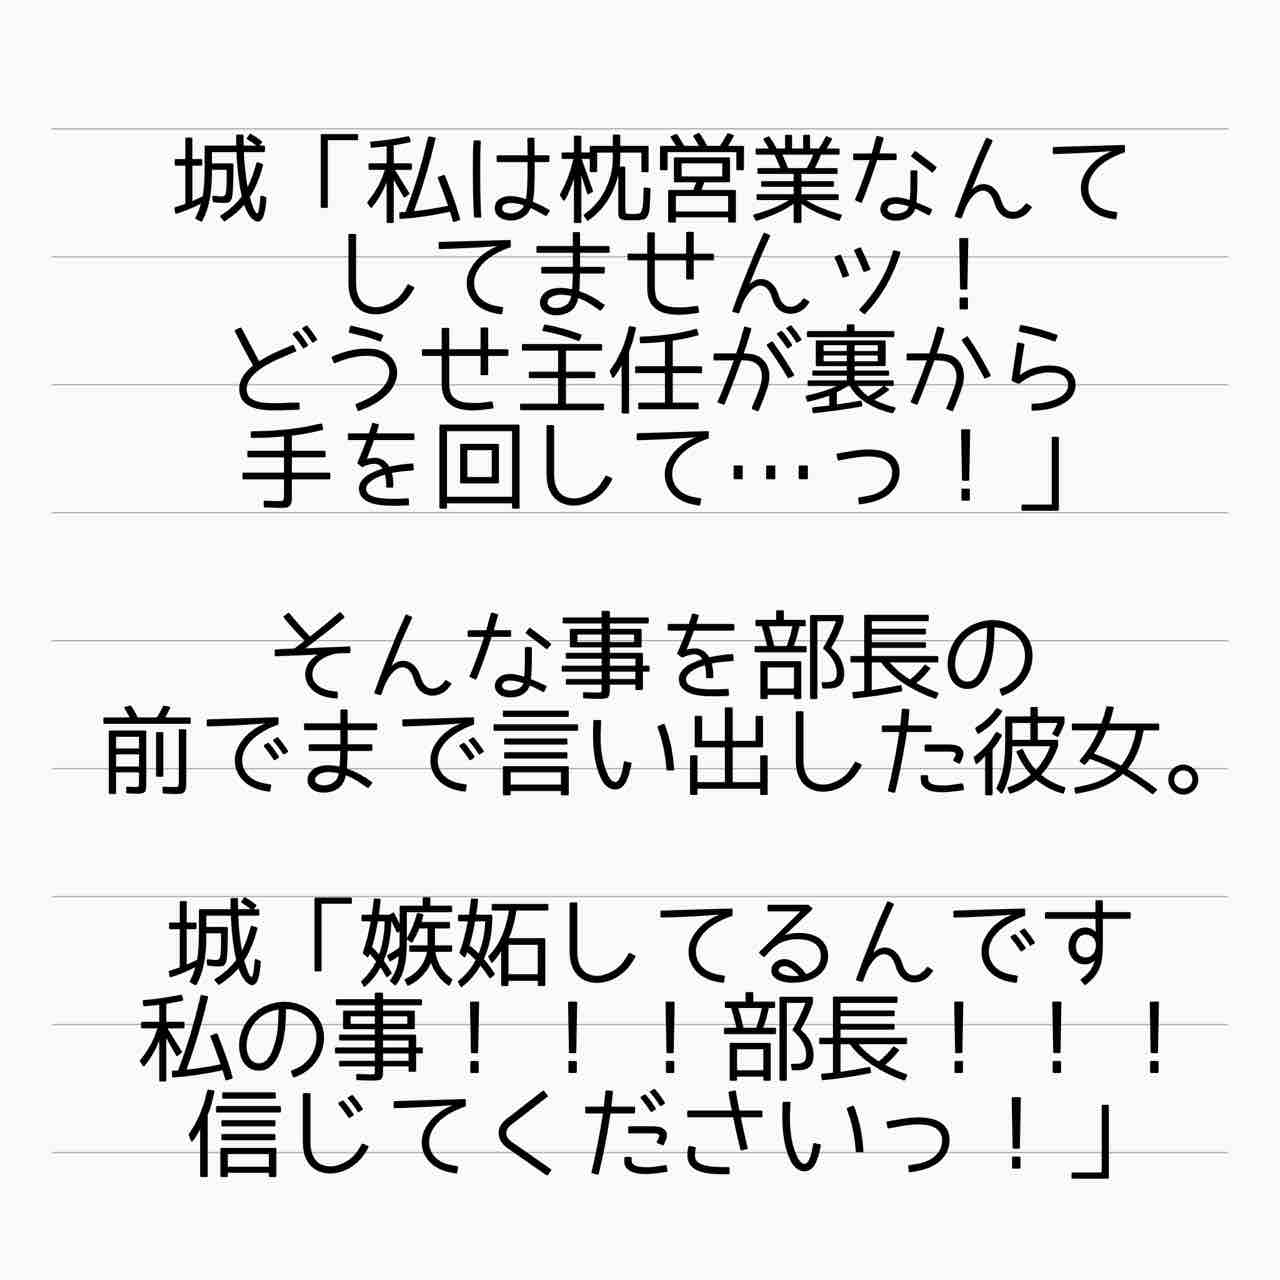 城「私は枕営業なんて
してませんッ！
どうせ主任が裏から
手を回して…っ！」
そんな事を部長の
前でまで言い出した彼女。
城「嫉妬してるんです
私の事！！！部長！！！
信じてくださいっ！」